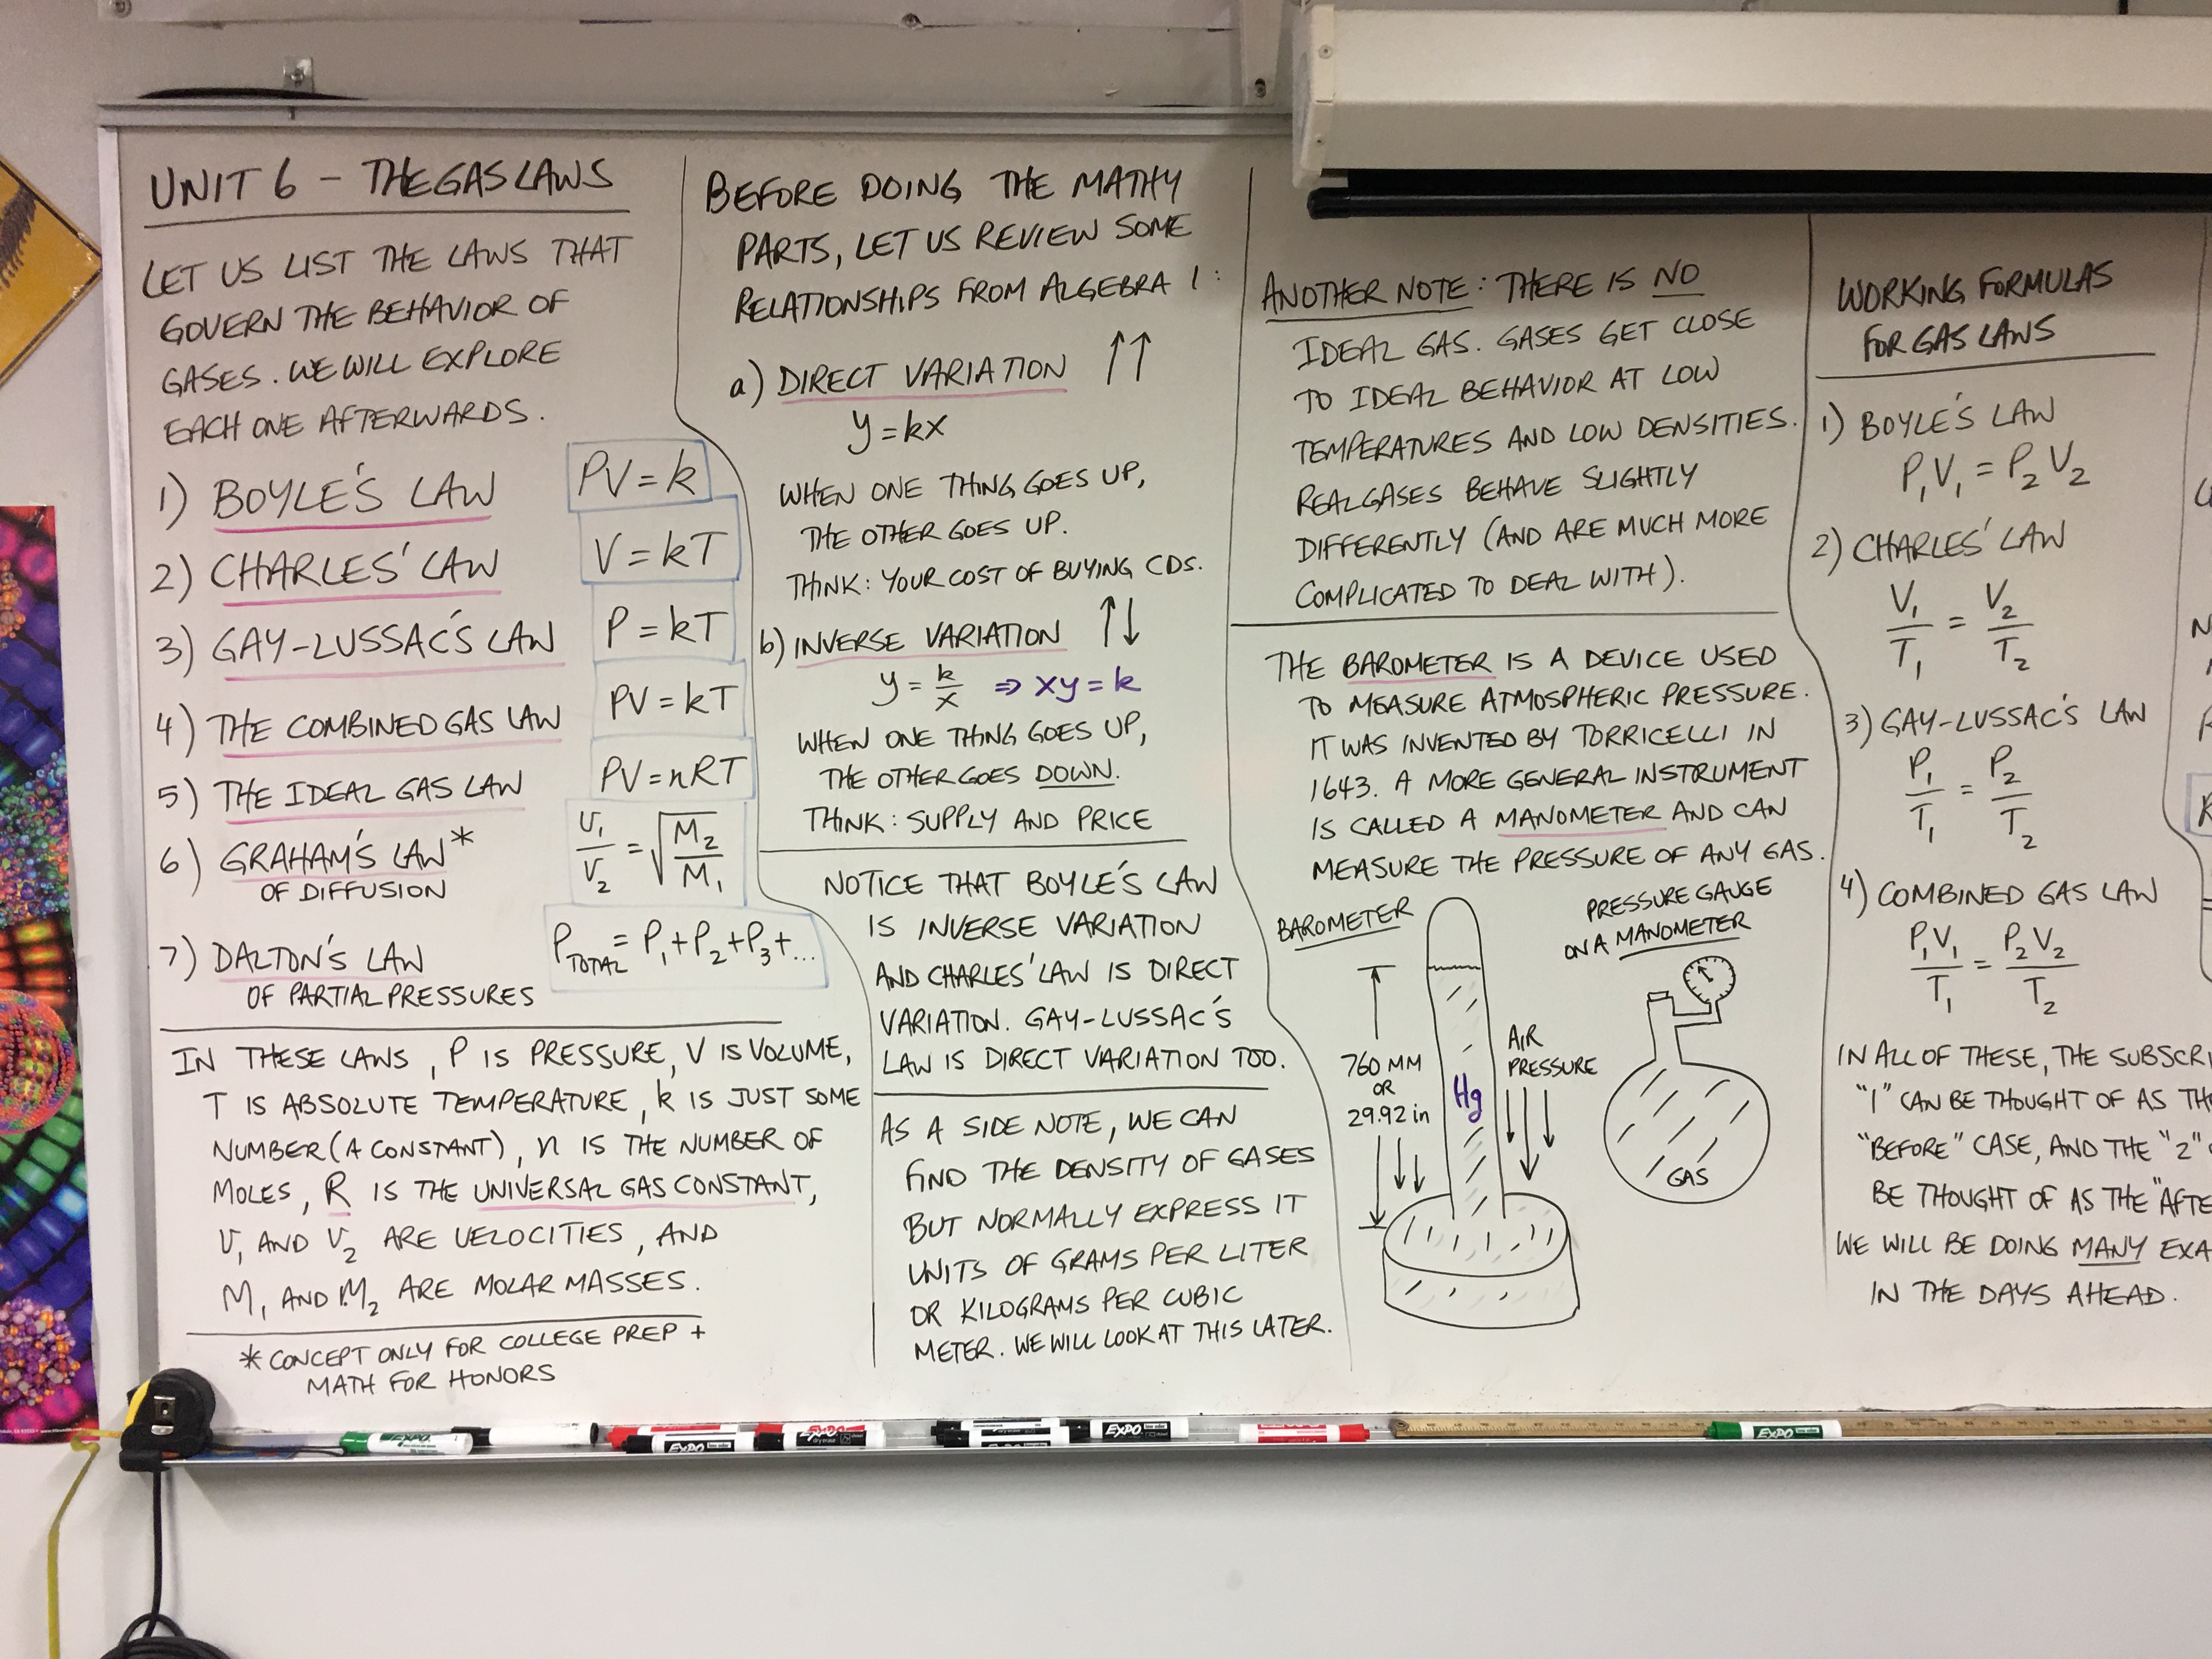 UNIT 6 – THE GAS LAWS
LET US LIST THE LAWS THAT
GOVERN THE BEHAVIOR OF
GASES. WE WILL EXPLORE
EACH ONE AFTERWARDS.
1) BOYLE'S LAW PV = k
2) CHARLES' LAW V = kT
3) GAY-LUSSAC'S LAW P = kT
4) THE COMBINED GAS LAW PV = kT
5) THE IDEAL GAS LAW PV = nRT
6) GRAHAM'S LAW* v₁/v₂ = √(M₂/M₁)
OF DIFFUSION
7) DALTON'S LAW P_TOTAL = P₁ + P₂ + P₃ + ...
OF PARTIAL PRESSURES
IN THESE LAWS, P IS PRESSURE, V IS VOLUME,
T IS ABSOLUTE TEMPERATURE, k IS JUST SOME
NUMBER (A CONSTANT), n IS THE NUMBER OF
MOLES, R IS THE UNIVERSAL GAS CONSTANT,
v₁ AND v₂ ARE VELOCITIES, AND
M₁ AND M₂ ARE MOLAR MASSES.
* CONCEPT ONLY FOR COLLEGE PREP +
MATH FOR HONORS
BEFORE DOING THE MATHY
PARTS, LET US REVIEW SOME
RELATIONSHIPS FROM ALGEBRA 1:
a) DIRECT VARIATION ↑↑
y = kx
WHEN ONE THING GOES UP,
THE OTHER GOES UP.
THINK: YOUR COST OF BUYING CDS.
b) INVERSE VARIATION ↑↓
y = k/x ⇒ xy = k
WHEN ONE THING GOES UP,
THE OTHER GOES DOWN.
THINK: SUPPLY AND PRICE
NOTICE THAT BOYLE'S LAW
IS INVERSE VARIATION
AND CHARLES' LAW IS DIRECT
VARIATION. GAY-LUSSAC'S
LAW IS DIRECT VARIATION TOO.
AS A SIDE NOTE, WE CAN
FIND THE DENSITY OF GASES
BUT NORMALLY EXPRESS IT
UNITS OF GRAMS PER LITER
OR KILOGRAMS PER CUBIC
METER. WE WILL LOOK AT THIS LATER.
ANOTHER NOTE: THERE IS NO
IDEAL GAS. GASES GET CLOSE
TO IDEAL BEHAVIOR AT LOW
TEMPERATURES AND LOW DENSITIES.
REAL GASES BEHAVE SLIGHTLY
DIFFERENTLY (AND ARE MUCH MORE
COMPLICATED TO DEAL WITH).
THE BAROMETER IS A DEVICE USED
TO MEASURE ATMOSPHERIC PRESSURE.
IT WAS INVENTED BY TORRICELLI IN
1643. A MORE GENERAL INSTRUMENT
IS CALLED A MANOMETER AND CAN
MEASURE THE PRESSURE OF ANY GAS.
BAROMETER
760 MM
OR
29.92 in
Hg
AIR
PRESSURE
PRESSURE GAUGE
ON A MANOMETER
GAS
WORKING FORMULAS
FOR GAS LAWS
1) BOYLE'S LAW
P₁V₁ = P₂V₂
2) CHARLES' LAW
V₁/T₁ = V₂/T₂
3) GAY-LUSSAC'S LAW
P₁/T₁ = P₂/T₂
4) COMBINED GAS LAW
P₁V₁/T₁ = P₂V₂/T₂
IN ALL OF THESE, THE SUBSCRI
"1" CAN BE THOUGHT OF AS TH
"BEFORE" CASE, AND THE "2"
BE THOUGHT OF AS THE "AFTE
WE WILL BE DOING MANY EXA
IN THE DAYS AHEAD.
EXPO
EXPO
EXPO
EXPO
EXPO
EXPO